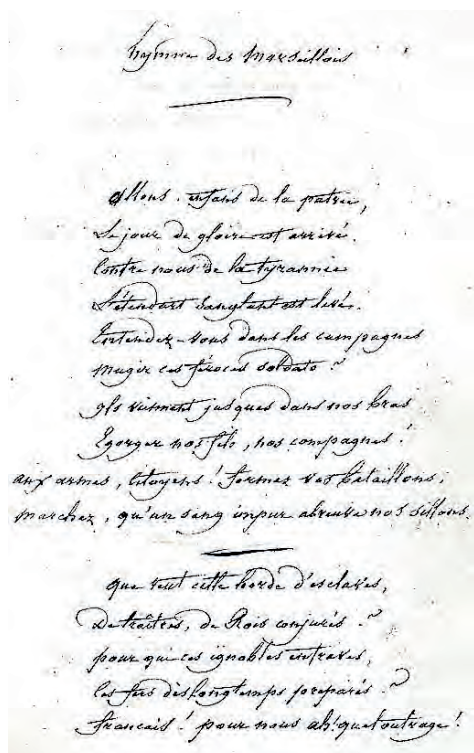 hymne des Marseillois
Allons, enfans de la patrie,
Le jour de gloire est arrivé.
Contre nous de la tyrannie
L'étendart sanglant est levé.
Entendez-vous dans les campagnes
Mugir ces féroces soldats ?
Ils viennent jusques dans nos bras
Egorger nos fils, nos compagnes !
aux armes, Citoyens ! formez vos bataillons ;
marchez, qu'un sang impur abreuve nos sillons.
que veut cette horde d'esclaves,
De traîtres, de Rois conjurés ?
pour qui ces ignobles entraves,
Ces fers dès longtemps préparés ?
français ! pour nous ah ! quel outrage !